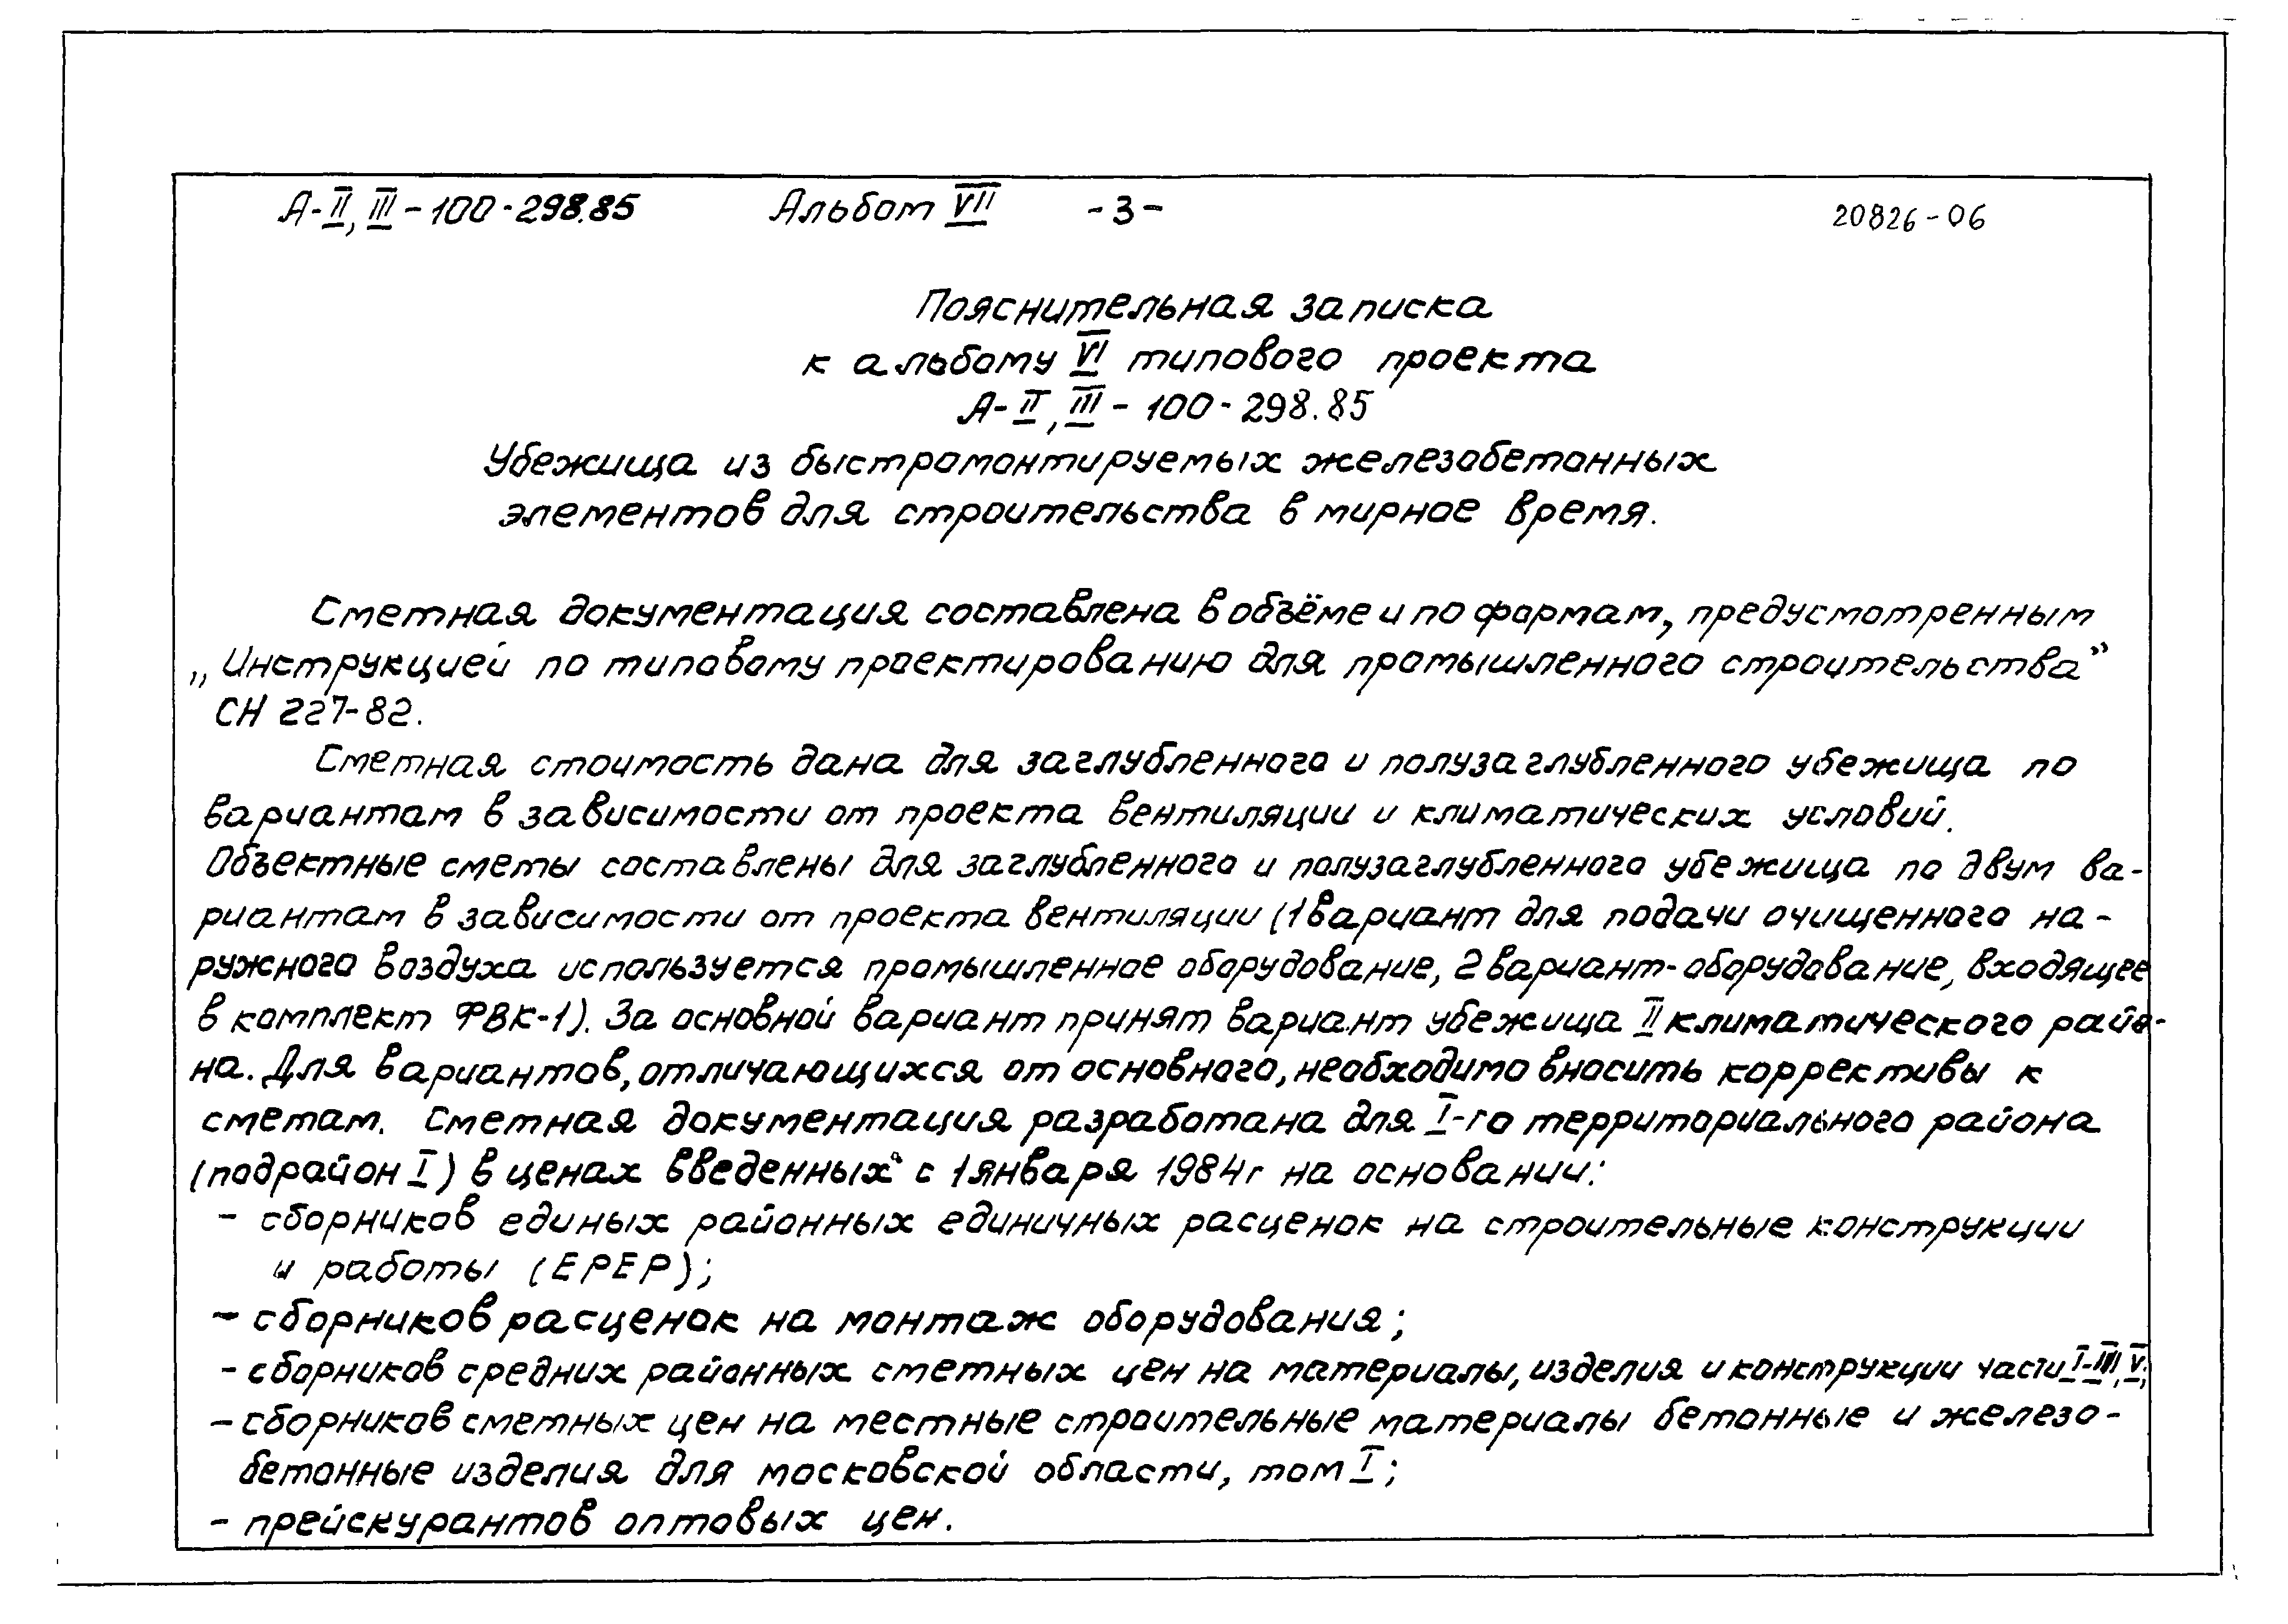 А-II, III-100-298.85 Альбом VII -3- 20826-06
Пояснительная записка
к альбому VI типового проекта
А-II, III-100-298.85
Убежища из быстромонтируемых железобетонных
элементов для строительства в мирное время.
Сметная документация составлена в объёме и по формам, предусмотренным
„Инструкцией по типовому проектированию для промышленного строительства”
СН 227-82.
Сметная стоимость дана для заглубленного и полузаглубленного убежища по
вариантам в зависимости от проекта вентиляции и климатических условий.
Объектные сметы составлены для заглубленного и полузаглубленного убежища по двум ва-
риантам в зависимости от проекта вентиляции (1 вариант для подачи очищенного на-
ружного воздуха используется промышленное оборудование, 2 вариант-оборудование, входящее
в комплект ФВК-1). За основной вариант принят вариант убежища II климатического райо-
на. Для вариантов, отличающихся от основного, необходимо вносить коррективы к
сметам. Сметная документация разработана для I-го территориального района
(подрайон I) в ценах введенных с 1 января 1984г на основании:
- сборников единых районных единичных расценок на строительные конструкции
и работы (ЕРЕР);
- сборников расценок на монтаж оборудования;
- сборников средних районных сметных цен на материалы, изделия и конструкции части I-III, V;
- сборников сметных цен на местные строительные материалы бетонные и железо-
бетонные изделия для московской области, том I;
- прейскурантов оптовых цен.